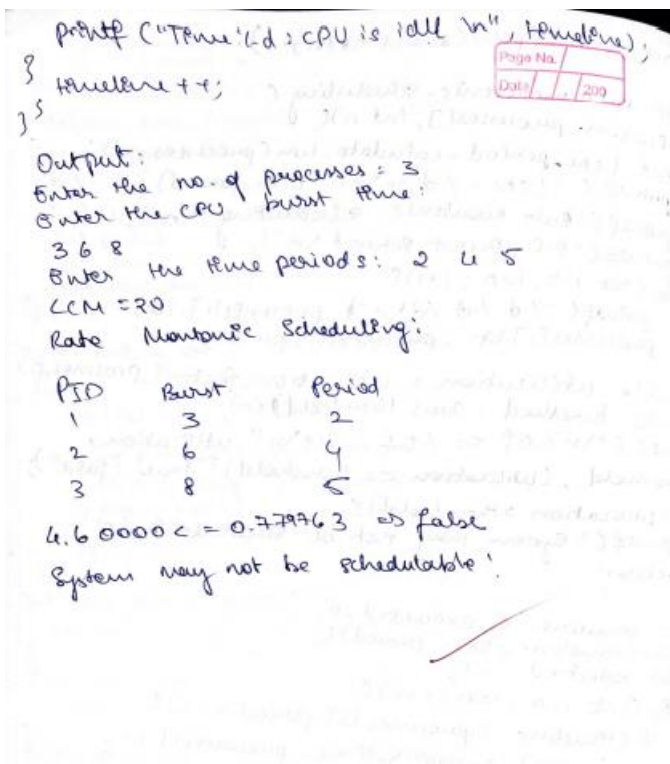 printf ("Time %d : CPU is idle \n", timeline);
}
timeline ++;
}
}
Page No.
Date / / 200
Output:
Enter the no of processes = 3
Enter the CPU burst time:
3 6 8
Enter the time periods: 2 4 5
LCM = 20
Rate Montonic Scheduling:
PID Burst Period
1 3 2
2 6 4
3 8 5
4.60000 <= 0.779763 => false
System may not be schedulable!